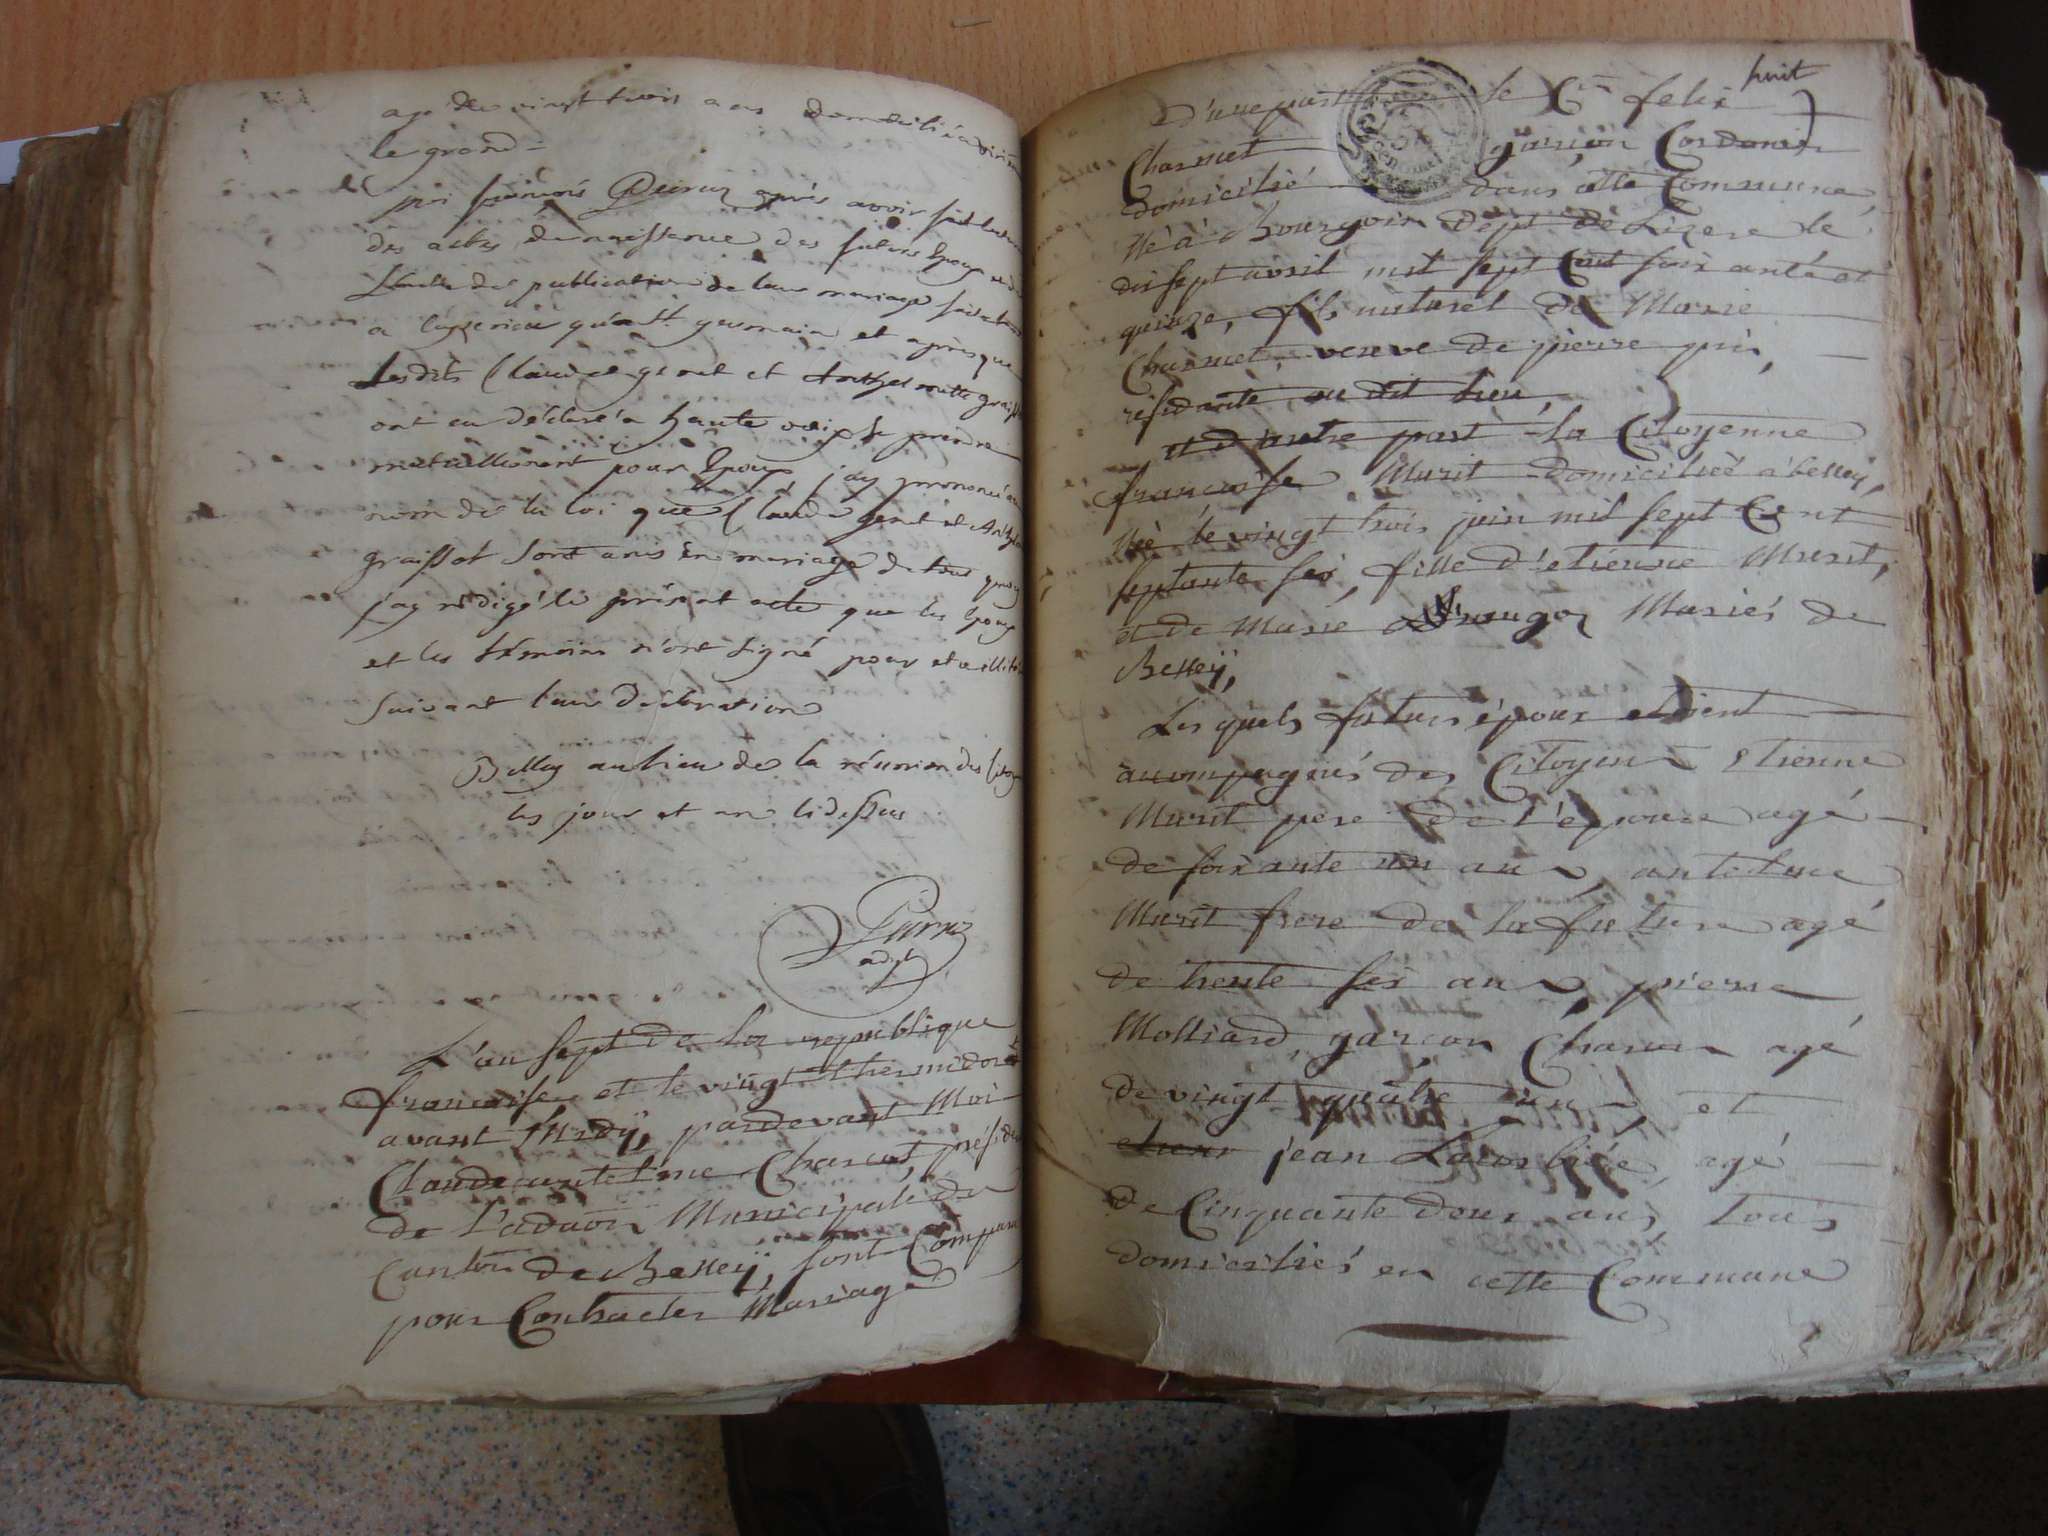 agé de vingt trois ans domicilié a virieu
le grand
et
moi francois Parraz après avoir fait lecture
des actes de naissance des futurs Epoux et de
l'acte de publication de leur mariage faite
a germain et après que
Lesdits Claude gent et Anthelmette graissot
ont eu déclaré a haute voix se prendre
mutuellement pour Epoux, j'ay prononcé au
nom de la loi que Claude gent et Anth
graissot sont unis en mariage de tout quoy
j'ay rédigé le présent acte que les Epoux
et les témoins n'ont signé pour etre illité
suivant leur déclaration
Belley au lieu de la réunion des Citoy
les jour et an cidessus
Parraz
adjt
L'an sept de la republique
francaise et le vingt thermidor
avant Midÿ, pardevant Moi
Claude antelme Charcot, présid
de l'adāōn Municipale du
Canton de Belleÿ, sont Comparu
pour Contracter Mariage
huit
D'une part le Cen felix
Charmet garçon Cordonier
domicilié dans cette Commune,
Né à Bourgoin Dept de Lizere le
dixsept avril mil sept Cent soixante et
quinze, fils naturel de Marie
Charmet veuve de pierre
residante au dit Lieu,
et d'autre part la Citoyenne
francoise Murit domiciliée a belley,
Née le vingt trois juin mil sept Cent
septante six, fille d'etienne Murit,
et de Marie Mariés de
Belleÿ,
Lesquels futurs époux etoient
accompagnés des Citoyens Etienne
Murit pere de l'epouse agé
de soixante un ans, antelme
Murit frere de la future agé
de trente six ans, pierre
Molliard, garçon Charon agé
de vingt quatre ans, et
jean agé
de Cinquante deux ans, tous
domiciliés en cette Commune